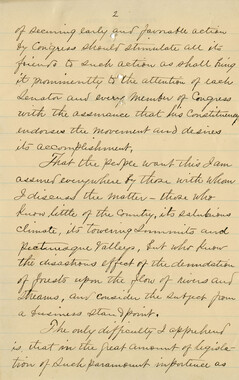 2
of securing early and favorable action
by Congress should stimulate all its
friends to such action as shall bring
it prominently to the attention of each
Senator and every Member of Congress
with the assurance that his Constituency
endorses the movement and desires
its accomplishment.
That the people want this I am
assured everywhere by those with whom
I discuss the matter - those who
know little of the Country, its salubrious
climate, its towering summits and
picturesque valleys, but who know
the disastrous effect of the denudation
of forests upon the flow of rivers and
streams, and consider the subject from
a business standpoint.
The only difficulty I apprehend
is, that in the great amount of legisla-
tion of such paramount importance as